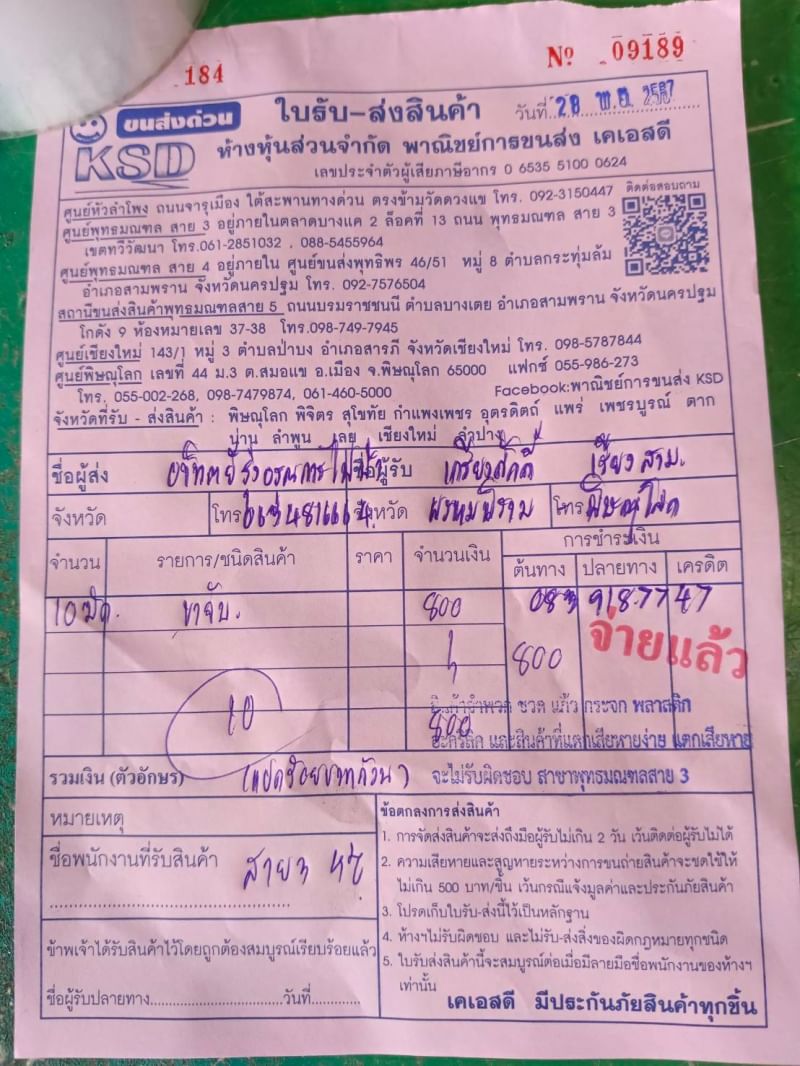 184
Nº 09189
ขนส่งด่วน
KSD
ใบรับ-ส่งสินค้า
วันที่ 28 พ.ย.
ห้างหุ้นส่วนจำกัด พาณิชย์การขนส่ง เคเอสดี
เลขประจำตัวผู้เสียภาษีอากร 0 6535 5100 0624
ติดต่อสอบถาม
ศูนย์หัวลำโพง ถนนจารุเมือง ใต้สะพานทางด่วน ตรงข้ามวัดดวงแข โทร. 092-3150447
ศูนย์พุทธมณฑล สาย 3 อยู่ภายในตลาดบางแค 2 ล็อคที่ 13 ถนน พุทธมณฑล สาย 3
เขตทวีวัฒนา โทร.061-2851032 , 088-5455964
ศูนย์พุทธมณฑล สาย 4 อยู่ภายใน ศูนย์ขนส่งพุทธิพร 46/51 หมู่ 8 ตำบลกระทุ่มล้ม
อำเภอสามพราน จังหวัดนครปฐม โทร. 092-7576504
สถานีขนส่งสินค้าพุทธมณฑลสาย 5 ถนนบรมราชชนนี ตำบลบางเตย อำเภอสามพราน จังหวัดนครปฐม
โกดัง 9 ห้องหมายเลข 37-38 โทร.098-749-7945
ศูนย์เชียงใหม่ 143/1 หมู่ 3 ตำบลป่าบง อำเภอสารภี จังหวัดเชียงใหม่ โทร. 098-5787844
ศูนย์พิษณุโลก เลขที่ 44 ม.3 ต.สมอแข อ.เมือง จ.พิษณุโลก 65000 แฟกซ์ 055-986-273
โทร. 055-002-268, 098-7479874, 061-460-5000 Facebook:พาณิชย์การขนส่ง KSD
จังหวัดที่รับ - ส่งสินค้า : พิษณุโลก พิจิตร สุโขทัย กำแพงเพชร อุตรดิตถ์ แพร่ เพชรบูรณ์ ตาก
น่าน ลำพูน เลย เชียงใหม่ ลำปาง
ชื่อผู้ส่ง ชื่อผู้รับ เกรียงศักดิ์
จังหวัด โทร จังหวัด พรหมพิราม โทร พิษณุโลก
จำนวน รายการ/ชนิดสินค้า ราคา จำนวนเงิน การชำระเงิน
ต้นทาง ปลายทาง เครดิต
10 มัด. ขาจับ. 800 083 918 77 47
800 จ่ายแล้ว
10
800
สินค้าจำพวก ขวด แก้ว กระจก พลาสติก
อะคริลิค และสินค้าที่แตกเสียหายง่าย แตกเสียหาย
รวมเงิน (ตัวอักษร) (แปดร้อยบาทถ้วน) จะไม่รับผิดชอบ สาขาพุทธมณฑลสาย 3
หมายเหตุ
ชื่อพนักงานที่รับสินค้า
ข้าพเจ้าได้รับสินค้าไว้โดยถูกต้องสมบูรณ์เรียบร้อยแล้ว
ชื่อผู้รับปลายทาง วันที่
ข้อตกลงการส่งสินค้า
1. การจัดส่งสินค้าจะส่งถึงมือผู้รับไม่เกิน 2 วัน เว้นติดต่อผู้รับไม่ได้
2. ความเสียหายและสูญหายระหว่างการขนถ่ายสินค้าจะชดใช้ให้
ไม่เกิน 500 บาท/ชิ้น เว้นกรณีแจ้งมูลค่าและประกันภัยสินค้า
3. โปรดเก็บใบรับ-ส่งนี้ไว้เป็นหลักฐาน
4. ห้างฯไม่รับผิดชอบ และไม่รับ-ส่งสิ่งของผิดกฎหมายทุกชนิด
5. ใบรับส่งสินค้านี้จะสมบูรณ์ต่อเมื่อมีลายมือชื่อพนักงานของห้างฯ
เท่านั้น
เคเอสดี มีประกันภัยสินค้าทุกชิ้น